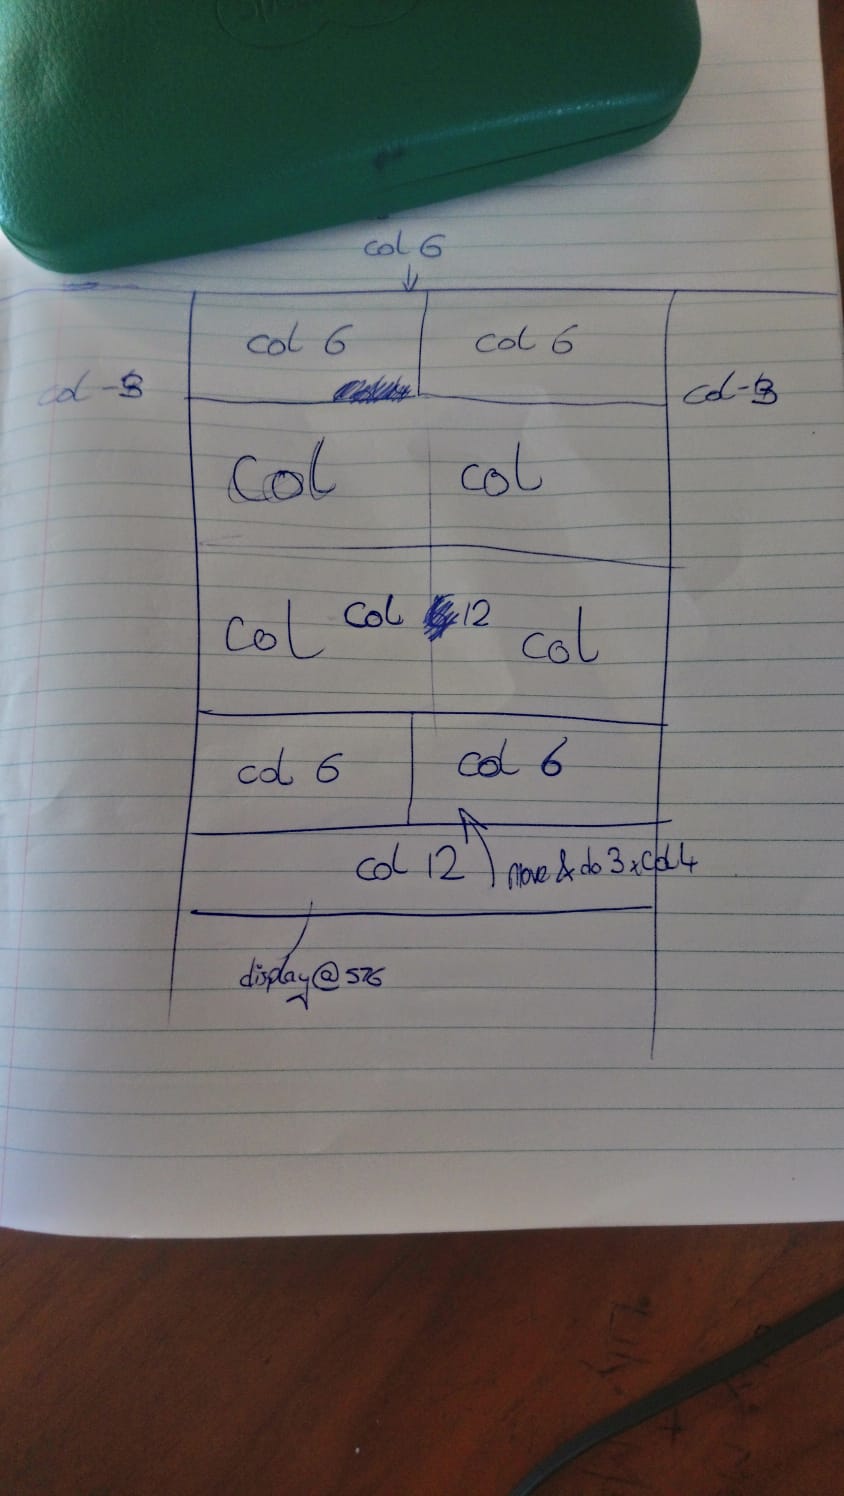 col 6
col 6 col 6
col-3 col-3
col col
col 12
col col
col 6 col 6
col 12 move & do 3 x col 4
display @ 576